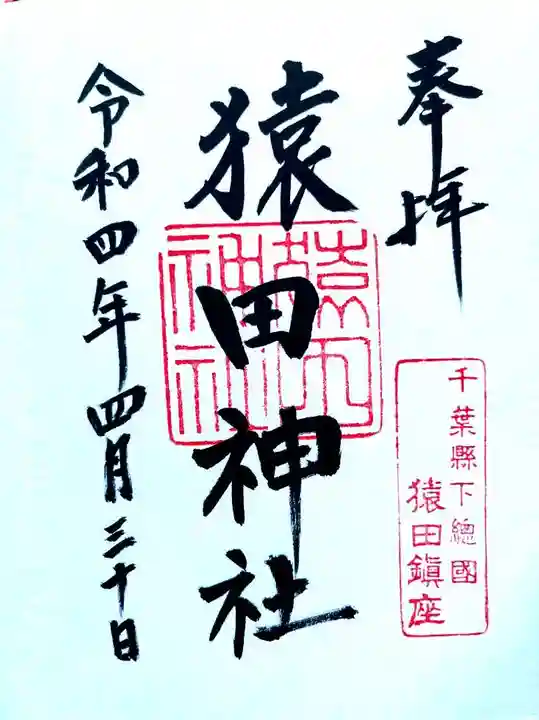 奉拝
千葉縣下總國
猿田鎮座
猿田神社
令和四年四月三十日